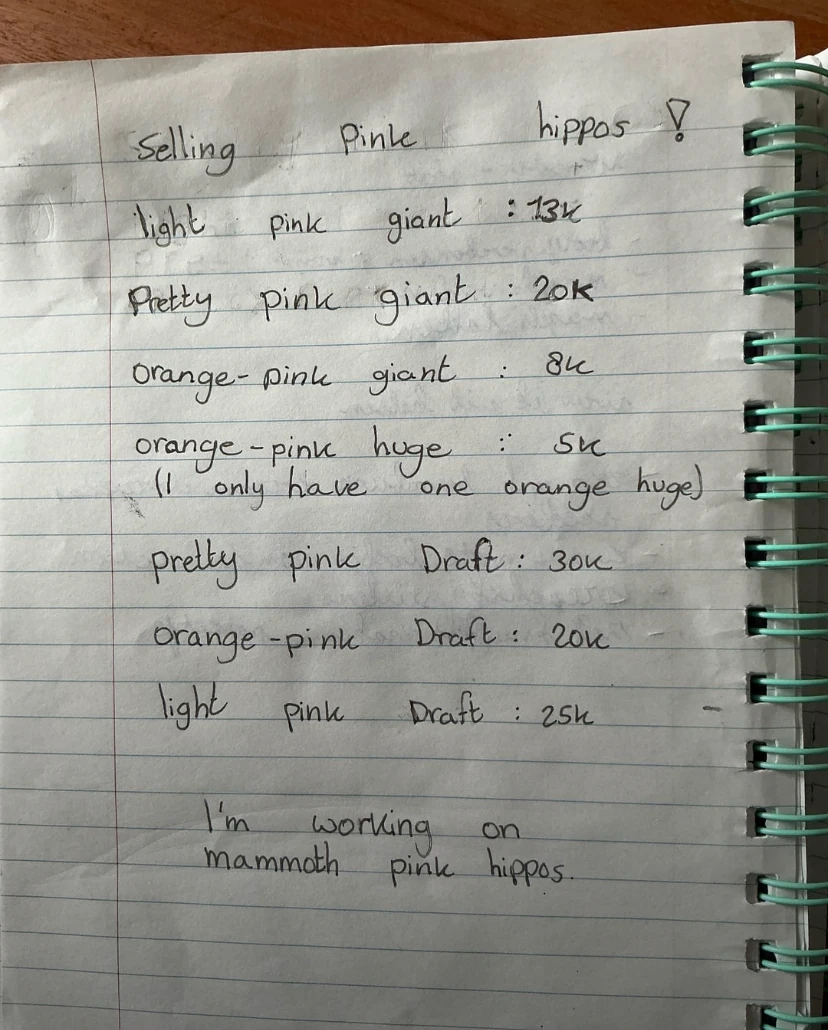 Selling Pink hippos !
light pink giant : 13k
Pretty pink giant : 20k
orange-pink giant : 8k
orange-pink huge : 5k
(I only have one orange huge)
pretty pink Draft : 30k
orange-pink Draft : 20k
light pink Draft : 25k
I'm working on
mammoth pink hippos.